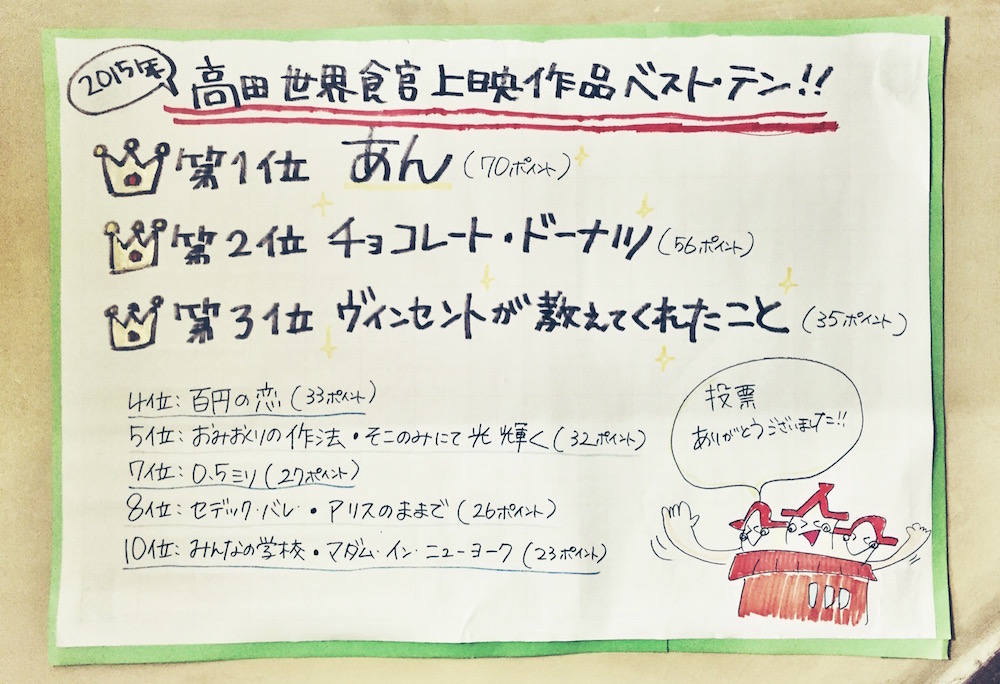 2015年
高田世界食官上映作品ベスト・テン!!
第1位 あん(70ポイント)
第2位 チョコレート・ドーナツ(56ポイント)
第3位 ヴィンセントが教えてくれたこと(35ポイント)
4位:百円の恋(33ポイント)
5位:おみおくりの作法・そこのみにて光輝く(32ポイント)
7位:0.5ミリ(27ポイント)
8位:セデック・バレ・アリスのままで(26ポイント)
10位:みんなの学校・マダム・イン・ニューヨーク(23ポイント)
投票
ありがとうございました!!